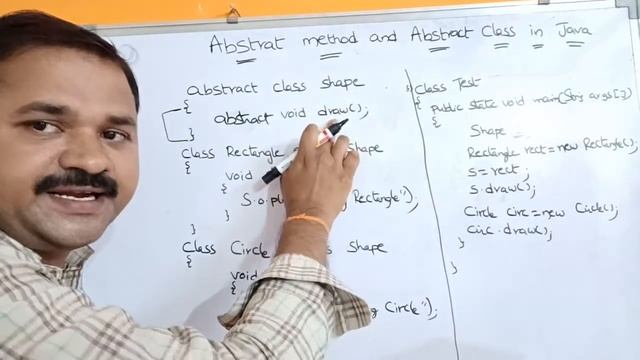 Abstrat method and Abstract Class in Java
abstract class shape
{
abstract void draw();
}
Class Rectangle shape
{
void
{
S.o.pl Rectangle");
}
Class Circle s shape
{
void
{
g Circle");
Class Test
{ public static void main(Strg args[])
{
Shape
Rectangle rect=new Rectangle();
s=rect;
s.draw();
Circle circ=new Circle();
circ.draw();
}
}